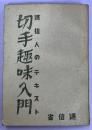 逓信人のテキスト
切手趣味入門
逓信省